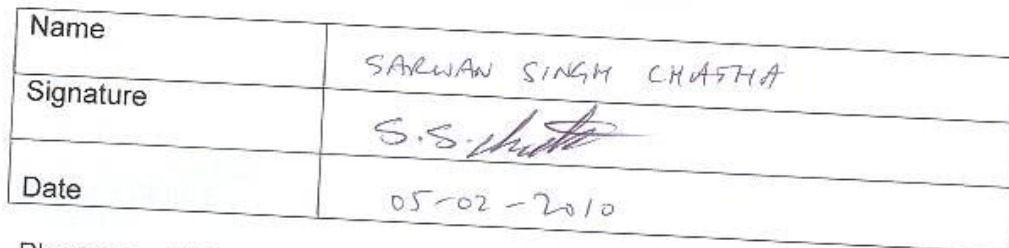 Name SARWAN SINGH CHATHA
Signature S.S. Chatha
Date 05-02-2010